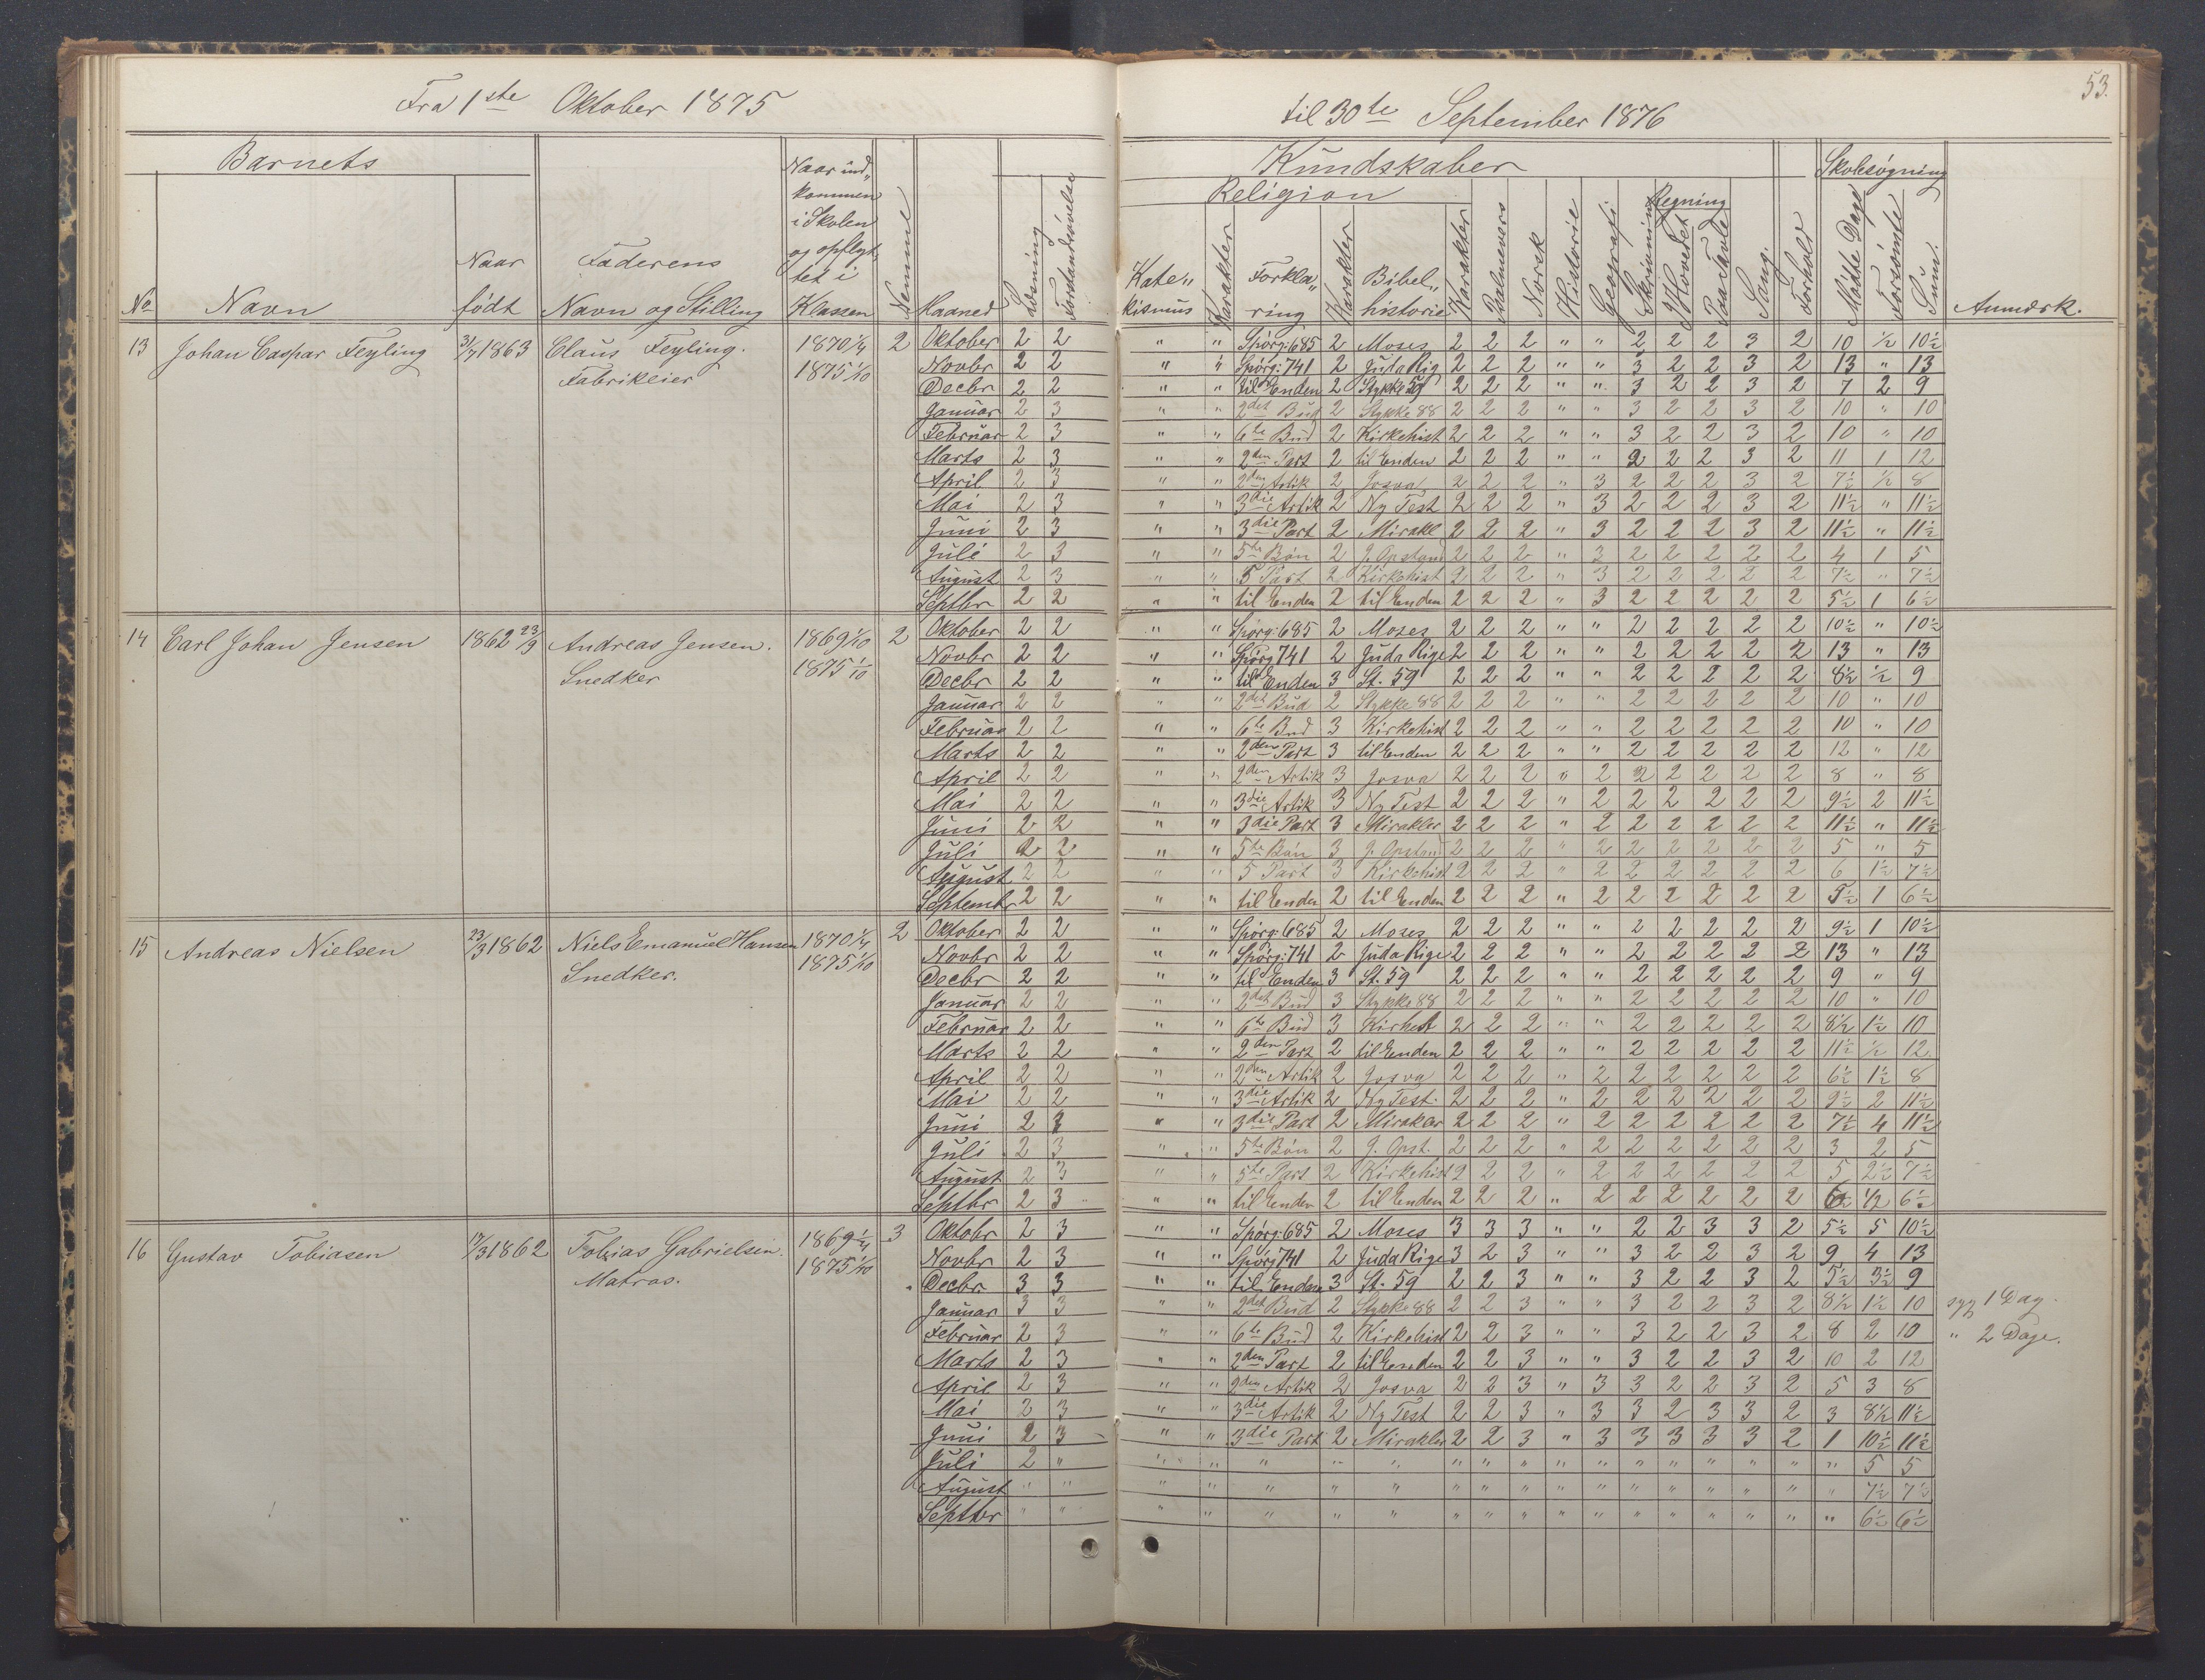 53.
Fra 1ste Oktober 1875 til 30te September 1876
Barnets Kundskaber Skolesøgning
Religion Regning
No Navn Naar født Faderens Navn og Stilling Naar ind„kommen i Skolen og opflyttet i Klassen Nemme Maaned Læsning Forstandsøvelse Kate„kismus Karakter Forkla„ring Karakter Bibel„historie Karakter Psalmevers Norsk Historie Geografi Skrivning I Hovedet Paa Tavle Sang. Forhold Mødte Dage Forsømte Sum. Anmærk.
13 Johan Caspar Feyling 31/7 1863 Claus Feyling. 1870 1/4 2 Oktober 2 2 " " Spørg: 685 2 Moses 2 2 2 " " 2 2 2 3 2 10 ½ 10½
Fabrikeier 1875 1/10 Novbr 2 2 " " Spørg: 741 2 Juda Rig 2 2 2 " " 3 2 2 3 2 13 " 13
Decbr 2 2 " " til Enden 2 Stykke 59 2 2 2 " " 3 2 2 3 2 7 2 9
Januar 2 3 " " 2det Bud 2 Stykke 88 2 2 2 " " 3 2 2 3 2 10 " 10
Februar 2 3 " " 6te Bud 2 Kirkehist 2 2 2 " " 3 2 2 3 2 10 " 10
Marts 2 3 " " 2den Part 2 til Enden 2 2 2 " " 2 2 2 3 2 11 1 12
April 2 3 " " 2den Artik 2 Josva 2 2 2 " 3 2 2 2 3 2 7½ ½ 8
Mai 2 3 " " 3die Artik 2 Ny Test 2 2 2 " 3 2 2 2 3 2 11½ " 11½
Juni 2 3 " " 3die Part 2 Mirakl 2 2 2 " 3 2 2 2 3 2 11½ " 11½
Juli 2 3 " " 5te Bøn 2 J. Opstand 2 2 2 " 3 2 2 2 2 2 4 1 5
August 2 3 " " 5 Part 2 Kirkehist 2 2 2 " 3 2 2 2 2 2 7½ " 7½
Septbr 2 2 " " til Enden 2 til Enden 2 2 2 " 3 2 2 2 2 2 5½ 1 6½
14 Carl Johan Jensen 1862 23/9 Andreas Jensen. 1869 1/10 2 Oktober 2 2 " " Spørg: 685 2 Moses 2 2 2 " " 2 2 2 2 2 10½ " 10½
Snedker 1875 1/10 Novbr 2 2 " " Spørg 741 2 Juda Rige 2 2 2 " " 2 2 2 2 2 13 " 13
Decbr 2 2 " " til Enden 3 St. 59 2 2 2 " " 2 2 2 2 2 8½ ½ 9
Januar 2 2 " " 2det Bud 2 Stykke 88 2 2 2 " " 2 2 2 2 2 10 " 10
Februar 2 2 " " 6te Bud 3 Kirkehist 2 2 2 " " 2 2 2 2 2 10 " 10
Marts 2 2 " " 2den Part 3 til Enden 2 2 2 " " 2 2 2 2 2 12 " 12
April 2 2 " " 2den Artik 3 Josva 2 2 2 " 2 2 2 2 2 2 8 " 8
Mai 2 2 " " 3die Artik 3 Ny Test 2 2 2 " 2 2 2 2 2 2 9½ 2 11½
Juni 2 2 " " 3die Part 3 Mirakler 2 2 2 " 2 2 2 2 2 2 11½ " 11½
Juli 2 2 " " 5te Bøn 3 J. Opstand 2 2 2 " 2 2 2 2 2 2 5 " 5
August 2 2 " " 5 Part 3 Kirkehist 2 2 2 " 2 2 2 2 2 2 6 1½ 7½
Septembr 2 2 " " til Enden 2 til Enden 2 2 2 " 2 2 2 2 2 2 5½ 1 6½
15 Andreas Nielsen 23/3 1862 Niels Emanuel Hansen 1870 1/4 2 Oktober 2 2 " " Spørg: 685 2 Moses 2 2 2 " " 2 2 2 2 2 9½ 1 10½
Snedker. 1875 1/10 Novbr 2 2 " " Spørg: 741 2 Juda Rige 2 2 2 " " 2 2 2 2 2 13 " 13
Decbr 2 2 " " til Enden 3 St. 59 2 2 2 " " 2 2 2 2 2 9 " 9
Januar 2 2 " " 2det Bud 3 Stykke 88 2 2 2 " " 2 2 2 2 2 10 " 10
Februar 2 2 " " 6te Bud 3 Kirhest 2 2 2 " " 2 2 2 2 2 8½ 1½ 10
Marts 2 2 " " 2den Part 2 til Enden 2 2 2 " " 2 2 2 2 2 11½ ½ 12
April 2 2 " " 2den Artik 2 Josva 2 2 2 " 2 2 2 2 2 2 6½ 1½ 8
Mai 2 2 " " 3die Artik 2 Ny Test. 2 2 2 " 2 2 2 2 2 2 9½ 2 11½
Juni 2 " " 3die Part 2 Mirakler 2 2 2 " 2 2 2 2 2 2 7½ 4 11½
Juli 2 3 " " 5te Bøn 2 J. Opst. 2 2 2 " 2 2 2 2 2 2 3 2 5
August 2 3 " " 5te Part 2 Kirkehist 2 2 2 " 2 2 2 2 2 2 5 2½ 7½
Septbr 2 3 " " til Enden 2 til Enden 2 2 2 " 2 2 2 2 2 2 ½ 6½
16 Gustav Tobiasen 17/3 1862 Tobias Gabrielsen. 1869 1/4 3 Oktobr 2 3 " " Spørg: 685 2 Moses 3 3 3 " " 2 2 3 3 2 5½ 5 10½
Matros. 1875 1/10 Novbr 2 3 " " Spørj 741 2 Juda Rige 3 2 3 " " 3 2 2 3 2 9 4 13
Decbr 3 3 " " til Enden 3 St. 59 2 2 3 " " 3 2 2 3 2 5½ 3½ 9
Januar 3 3 " " 2det Bud 2 Stykke 88 2 2 3 " " 3 2 2 3 2 8½ 1½ 10 syg 1 Dag.
Februar 2 3 " " 6te Bud 2 Kirkehist 2 2 3 " " 3 2 2 3 2 8 2 10 " 2 Dage.
Marts 2 3 " " 2den Part 2 til Enden 2 2 3 " " 3 2 2 3 2 10 2 12
April 2 3 " " 2den Artik 2 Josva 2 2 3 " 3 3 2 2 3 2 5 3 8
Mai 2 3 " " 3die Artik 2 Ny Test 2 2 3 " 3 3 2 3 3 2 3 8½ 11½
Juni 2 3 " " 3die Part 2 Mirakler 2 2 3 " 3 3 3 3 3 2 1 10½ 11½
Juli 2 " " " " " " " " " " " " " " " " " 5 5
August " " " " " " " " " " " " " " " " " " 7½ 7½
Septbr " " " " " " " " " " " " " " " " " " 6½ 6½